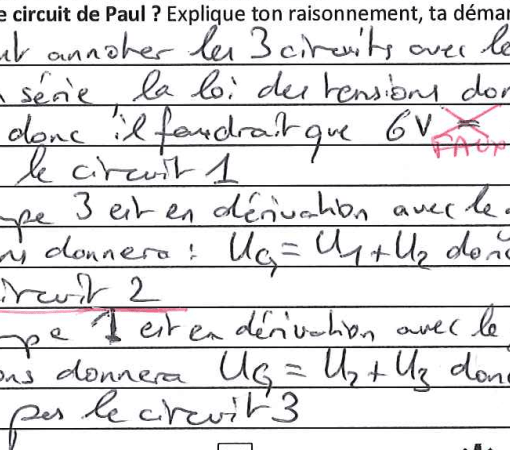 e circuit de Paul ? Explique ton raisonnement, ta démar
ut annoter les 3 circuits avec le
série, la loi des tensions don
donc il faudrait que 6V =
FAUX
le circuit 1
pe 3 est en dérivation avec le
ns donnera : UG = U1 + U2 donc
ircuit 2
pe 1 est en dérivation avec le
ons donnera UG = U2 + U3 donc
pas le circuit 3